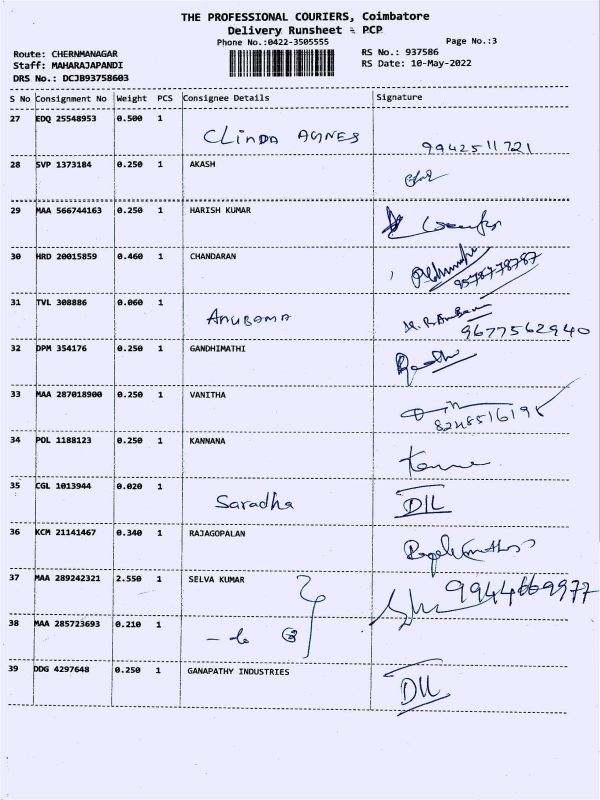 THE PROFESSIONAL COURIERS, Coimbatore
Delivery Runsheet - PCP
Phone No.:0422-3505555 Page No.:3
Route: CHERNMANAGAR RS No.: 937586
Staff: MAHARAJAPANDI RS Date: 10-May-2022
DRS No.: DCJB93758603
S No Consignment No Weight PCS Consignee Details Signature
27 EDQ 25548953 0.500 1
CLINDA AGNES 9942511721
28 SVP 1373184 0.250 1 AKASH
29 MAA 566744163 0.250 1 HARISH KUMAR
30 HRD 20015859 0.460 1 CHANDARAN
9578778787
31 TVL 308886 0.060 1
ANUBAMA
9677562940
32 DPM 354176 0.250 1 GANDHIMATHI
33 MAA 287018900 0.250 1 VANITHA
34 POL 1188123 0.250 1 KANNANA
35 CGL 1013944 0.020 1
Saradha DIL
36 KCM 21141467 0.340 1 RAJAGOPALAN
37 MAA 289242321 2.550 1 SELVA KUMAR
38 MAA 285723693 0.210 1
39 DDG 4297648 0.250 1 GANAPATHY INDUSTRIES
DIL